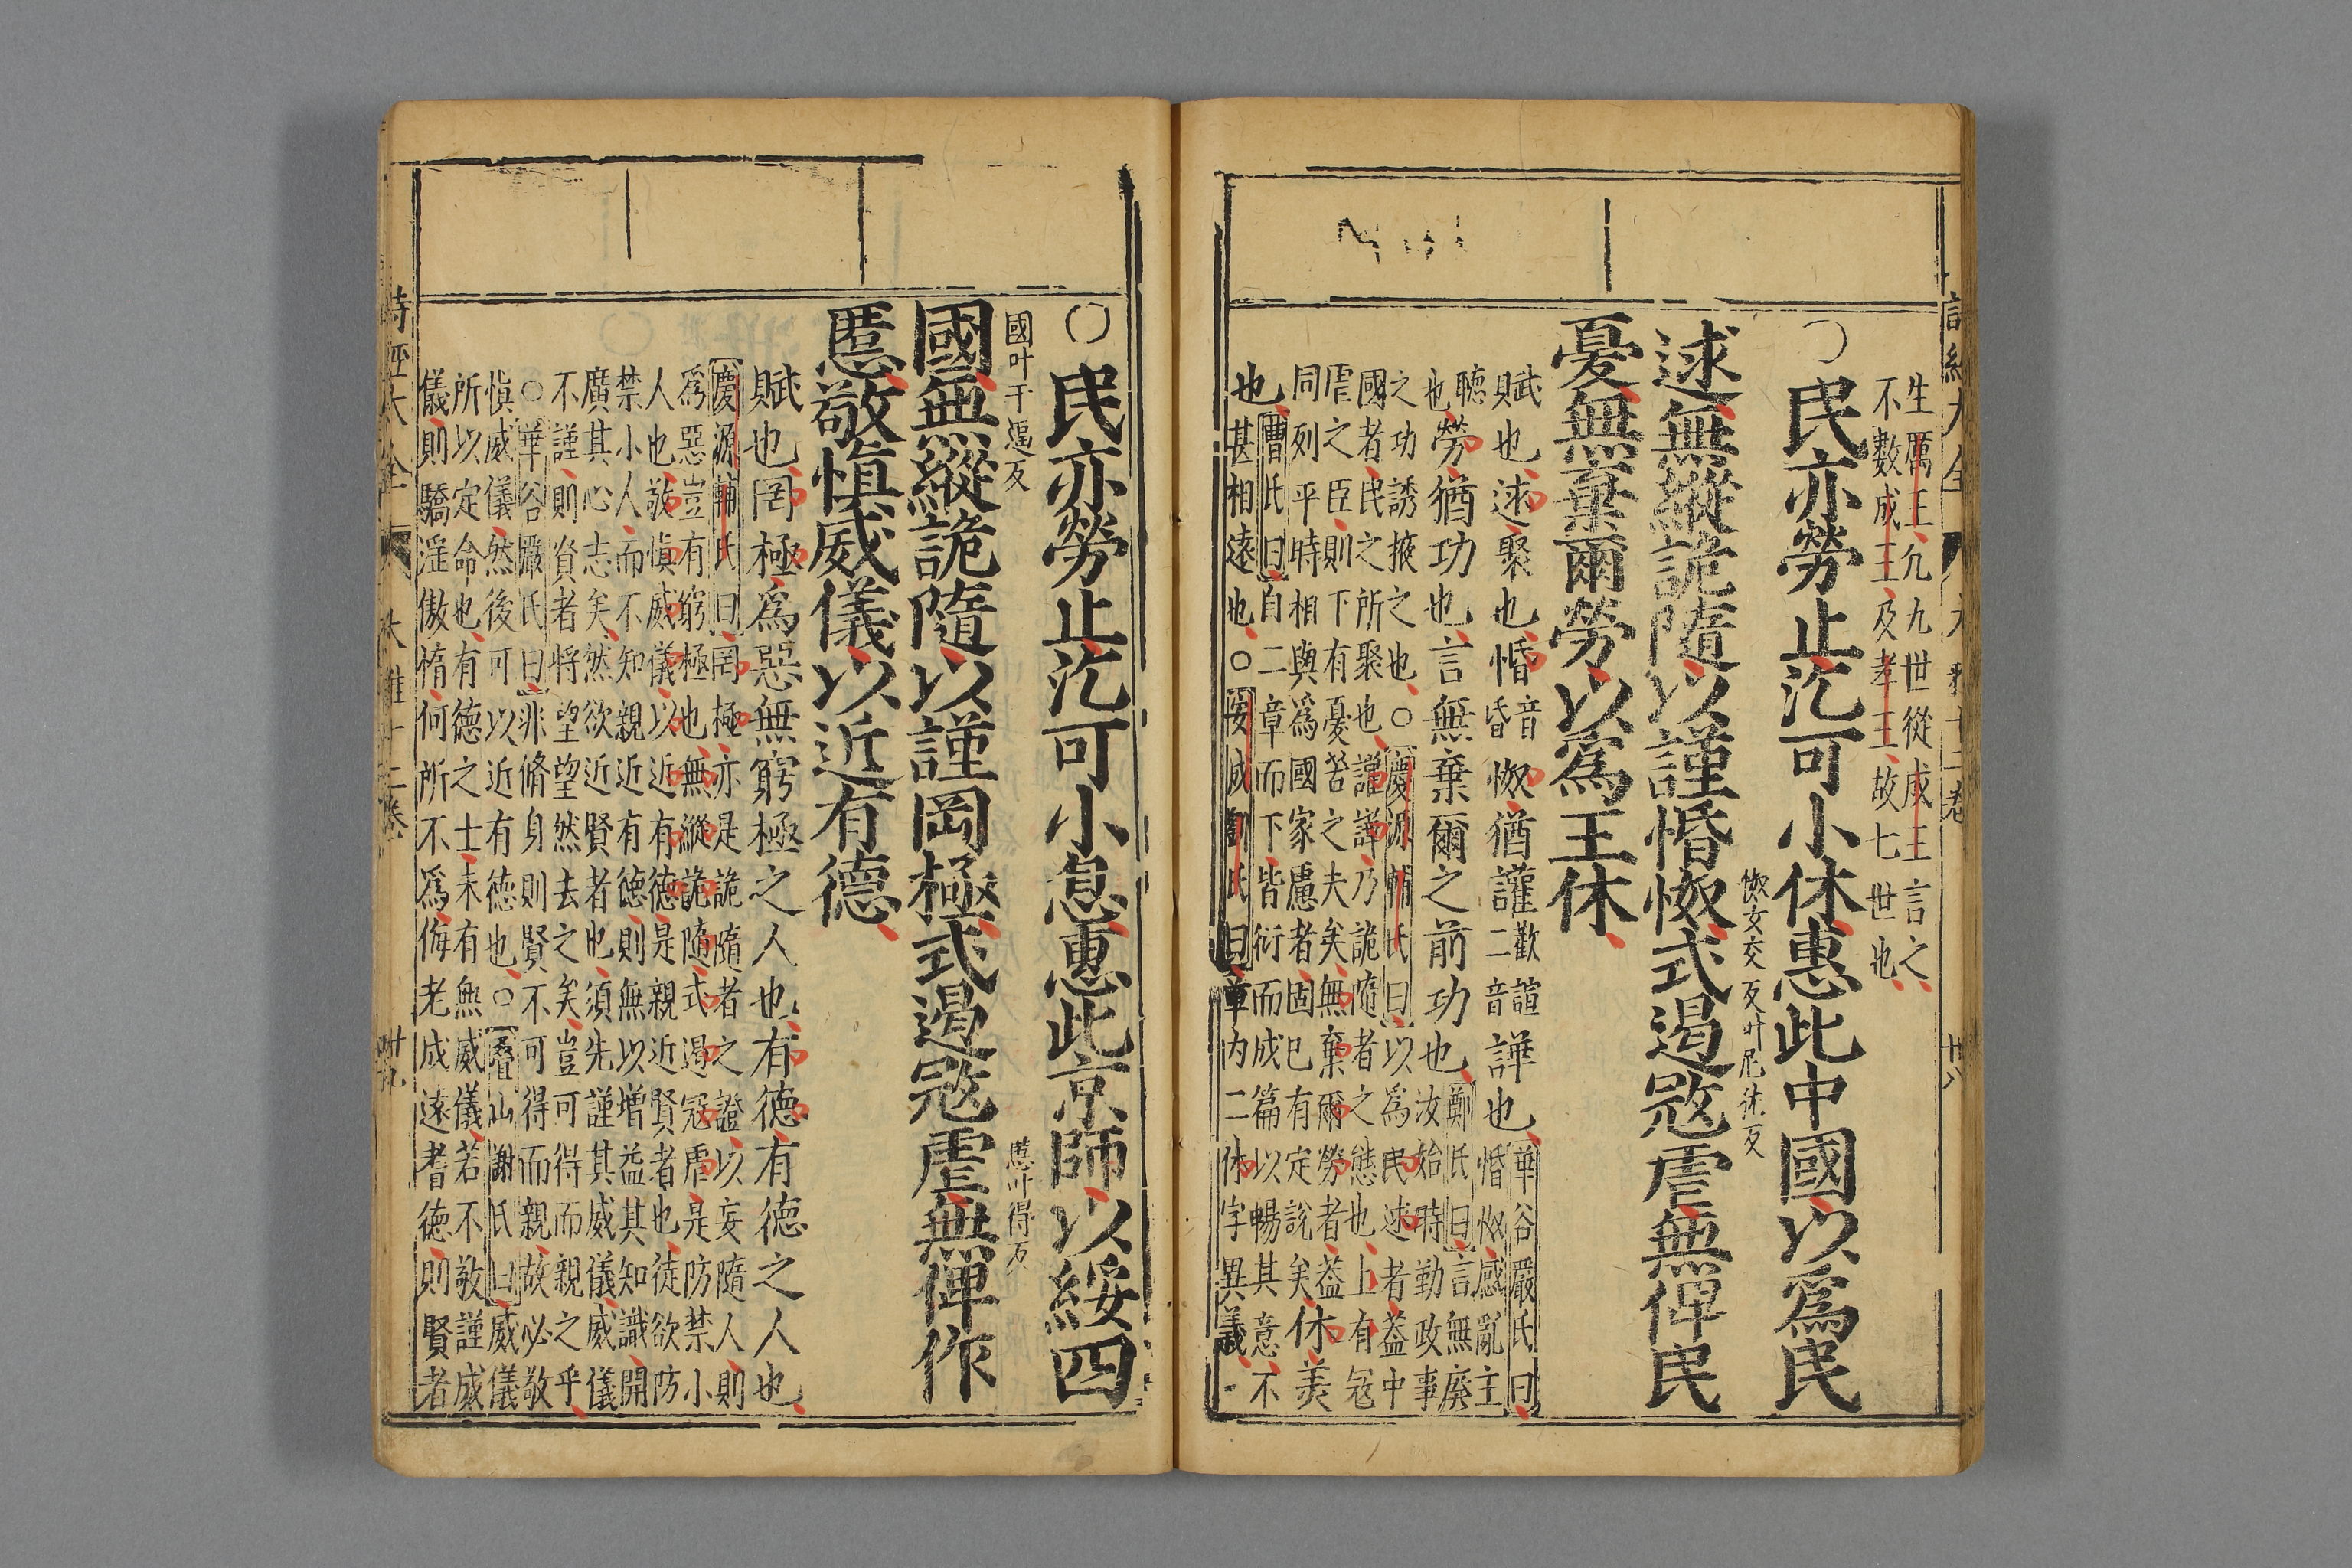 生厲王凡九世從成王言之
不數成王及孝王故七世也
○民亦勞止汔可小休惠此中國以爲民
逑無縱詭隨以謹惛怓式遏寇虐無俾民
怓女交反叶尼猶反
憂無棄爾勞以爲王休
賦也逑聚也惛音昏怓猶讙歡諠二音譁也華谷嚴氏曰
惛怓感亂主
聽也勞猶功也言無棄爾之前功也鄭氏曰言無廢
汝始時勤政事
之功誘掖之也○慶源輔氏曰以爲民逑者葢中
國者民之所聚也謹譁乃詭隨者之態也上有寇
虐之臣則下有憂苦之夫矣無棄爾勞者葢
同列平時相與爲國家慮者固已有定說矣休美
也曹氏曰自二章而下皆衍而成篇以暢其意不
甚相遠也○安成劉氏曰章内二休字異義
○民亦勞止汔可小愒惠此京師以綏四
國叶于逼反
國無縱詭隨以謹罔極式遏寇虐無俾作
慝叶得反
慝敬慎威儀以近有德
賦也罔極爲惡無窮極之人也有德有德之人也
慶源輔氏曰罔極亦是詭隨者之證以妄隨人則
爲惡豈有窮極也無縱詭隨式遏寇虐是防禁小
人也敬慎威儀以近有德是親近賢者也徒欲防
禁小人而不知親近有德則無以增益其知識開
廣其心志矣然欲近賢者也須先謹其威儀威儀
不謹則賢者將望望然去之矣豈可得而親之乎
○華谷嚴氏曰非脩身則賢不可得而親故必敬
慎威儀然後可以近有德也○疊山謝氏曰威儀
所以定命也有德之士未有無威儀若不敬謹威
儀則驕淫傲惰何所不爲侮老成遠耆德則賢者